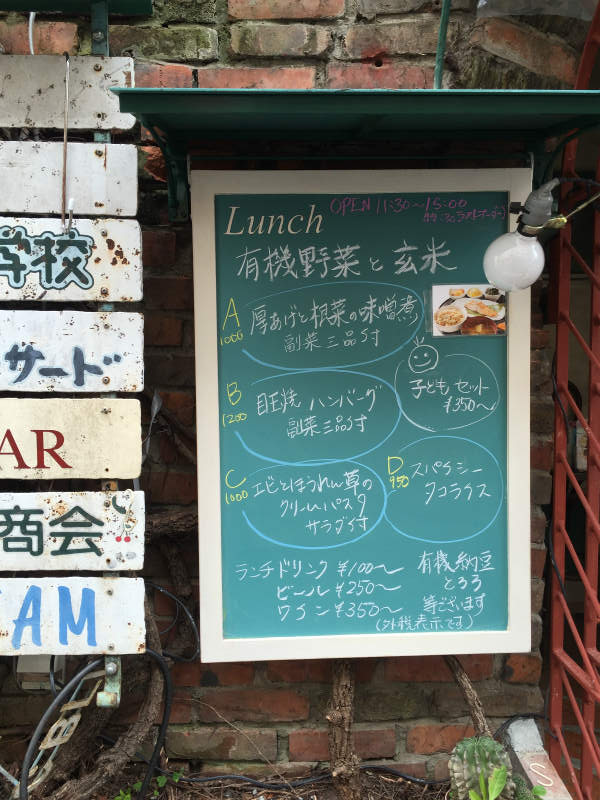 学校
サード
AR
商会
!!
EAM
Lunch
OPEN 11:30〜15:00
有機野菜と玄米
A
1000
厚あげと根菜の味噌煮
副菜三品付
B
1200
目玉焼ハンバーグ
副菜三品付
子どもセット
¥350〜
C
1000
エビとほうれん草の
クリームパスタ
サラダ付
D
950
スパイシー
タコライス
ランチドリンク ¥100〜
ビール ¥250〜
ワイン ¥350〜
有機納豆
とろろ
等ございます
(外税表示です)
S